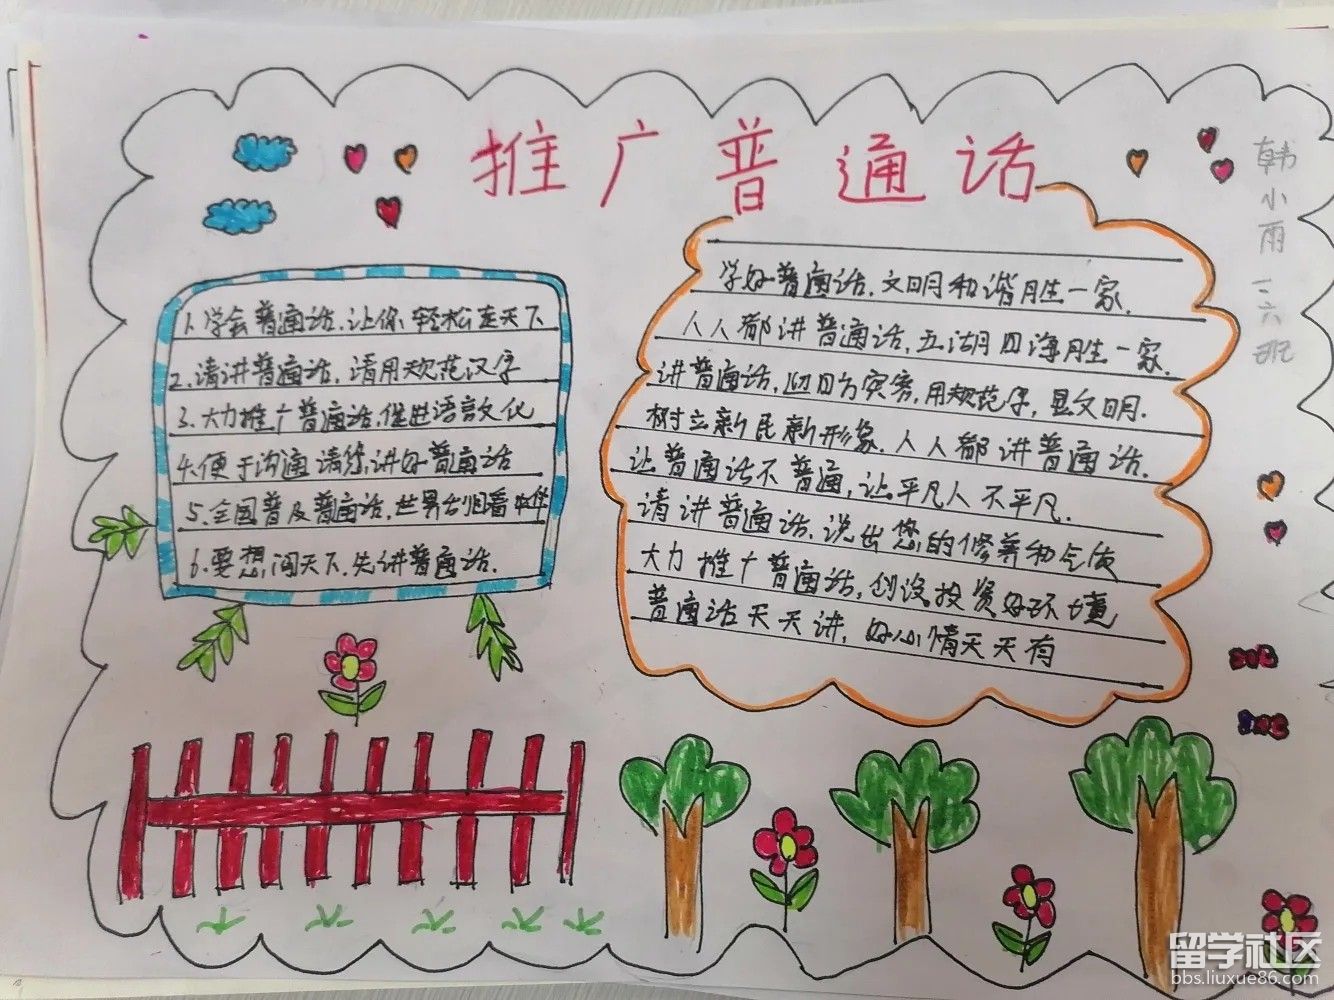 推广普通话
韩小雨 三六班
1.学会普通话,让你轻松走天下
2.请讲普通话,请用规范汉字
3.大力推广普通话,促进语言文化
4.便于沟通请您讲好普通话
5.全国普及普通话,世界
6.要想闯天下.先讲普通话.
学好普通话,文明和谐胜一家.
人人都讲普通话,五湖四海胜一家.
讲普通话,迎四方宾客,用规范字,显文明.
树立新民新形象.人人都讲普通话.
让普通话不普通,让平凡人不平凡.
请讲普通话.说出您的修养和气质
大力推广普通话,创设投资好环境
普通话天天讲,好心情天天有
留学社区
bbs.liuxue86.com